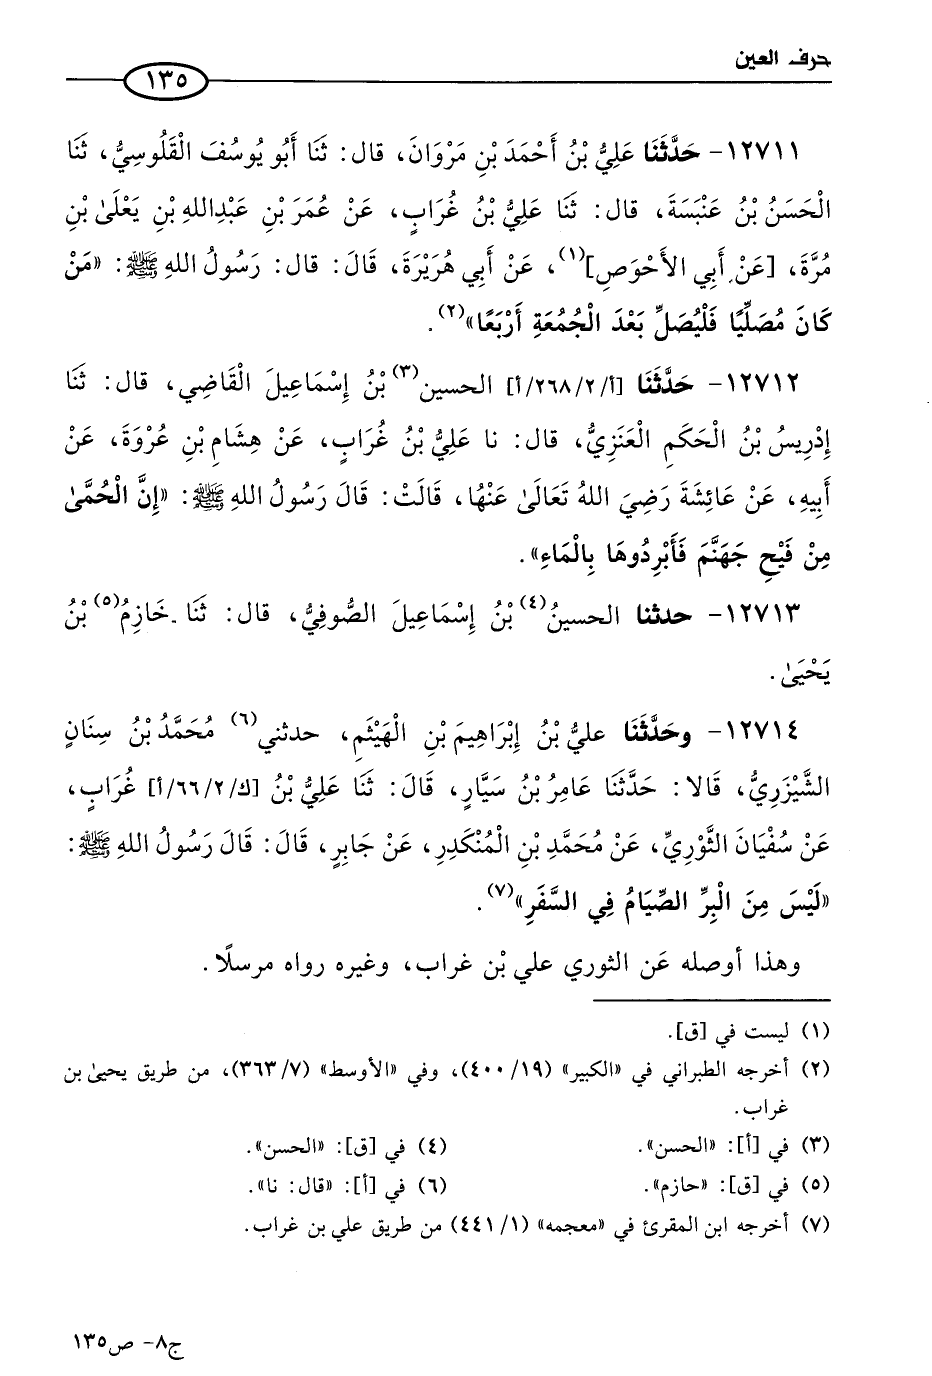 حرف العين
١٣٥
١٢٧١١- حَدَّثَنَا عَلِيُّ بْنُ أَحْمَدَ بْنِ مَرْوَانَ، قال: ثَنَا أَبُو يُوسُفَ الْقَلُوسِيُّ، ثَنَا
الْحَسَنُ بْنُ عَنْبَسَةَ، قال: ثَنَا عَلِيُّ بْنُ غُرَابٍ، عَنْ عُمَرَ بْنِ عَبْدِاللهِ بْنِ يَعْلَىٰ بْنِ
مُرَّةَ، [عَنْ أَبِي الأَحْوَصِ](١)، عَنْ أَبِي هُرَيْرَةَ، قَالَ: قال: رَسُولُ اللهِ ﷺ: «مَنْ
كَانَ مُصَلِّيًا فَلْيُصَلِّ بَعْدَ الْجُمُعَةِ أَرْبَعًا»(٢).
١٢٧١٢- حَدَّثَنَا [أ/٢/٢٦٨/أ] الحسين(٣) بْنُ إِسْمَاعِيلَ الْقَاضِي، قال: ثَنَا
إِدْرِيسُ بْنُ الْحَكَمِ الْعَنَزِيُّ، قال: نا عَلِيُّ بْنُ غُرَابٍ، عَنْ هِشَامِ بْنِ عُرْوَةَ، عَنْ
أَبِيهِ، عَنْ عَائِشَةَ رَضِيَ اللهُ تَعَالَىٰ عَنْهَا، قَالَتْ: قَالَ رَسُولُ اللهِ ﷺ: «إِنَّ الْحُمَّىٰ
مِنْ فَيْحِ جَهَنَّمَ فَأَبْرِدُوهَا بِالْمَاءِ».
١٢٧١٣- حدثنا الحسينُ(٤) بْنُ إِسْمَاعِيلَ الصُّوفِيُّ، قال: ثَنَا خَازِمُ(٥) بْنُ
يَحْيَىٰ.
١٢٧١٤- وحَدَّثَنَا عليُّ بْنُ إِبْرَاهِيمَ بْنِ الْهَيْثَمِ، حدثني(٦) مُحَمَّدُ بْنُ سِنَانٍ
الشَّيْزَرِيُّ، قَالا: حَدَّثَنَا عَامِرُ بْنُ سَيَّارٍ، قَالَ: ثَنَا عَلِيُّ بْنُ [ك/٢/٦٦/أ] غُرَابٍ،
عَنْ سُفْيَانَ الثَّوْرِيِّ، عَنْ مُحَمَّدِ بْنِ الْمُنْكَدِرِ، عَنْ جَابِرٍ، قَالَ: قَالَ رَسُولُ اللهِ ﷺ:
«لَيْسَ مِنَ الْبِرِّ الصِّيَامُ فِي السَّفَرِ»(٧).
وهذا أوصله عَن الثوري علي بْن غراب، وغيره رواه مرسلًا.
(١) ليست في [ق].
(٢) أخرجه الطبراني في «الكبير» (١٩/٤٠٠)، وفي «الأوسط» (٧/٣٦٣)، من طريق يحيىٰ بن
غراب.
(٣) في [أ]: «الحسن». (٤) في [ق]: «الحسن».
(٥) في [ق]: «حازم». (٦) في [أ]: «قال: نا».
(٧) أخرجه ابن المقرئ في «معجمه» (١/٤٤١) من طريق علي بن غراب.
ج٨- ص١٣٥